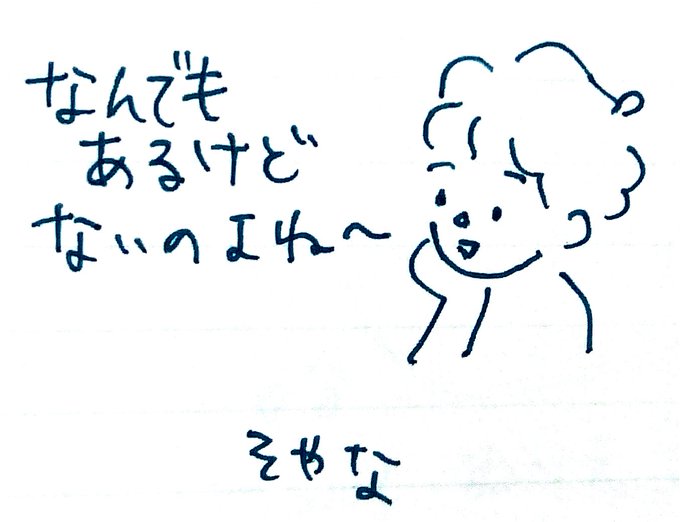 なんでも
あるけど
ないのよね〜
そやな